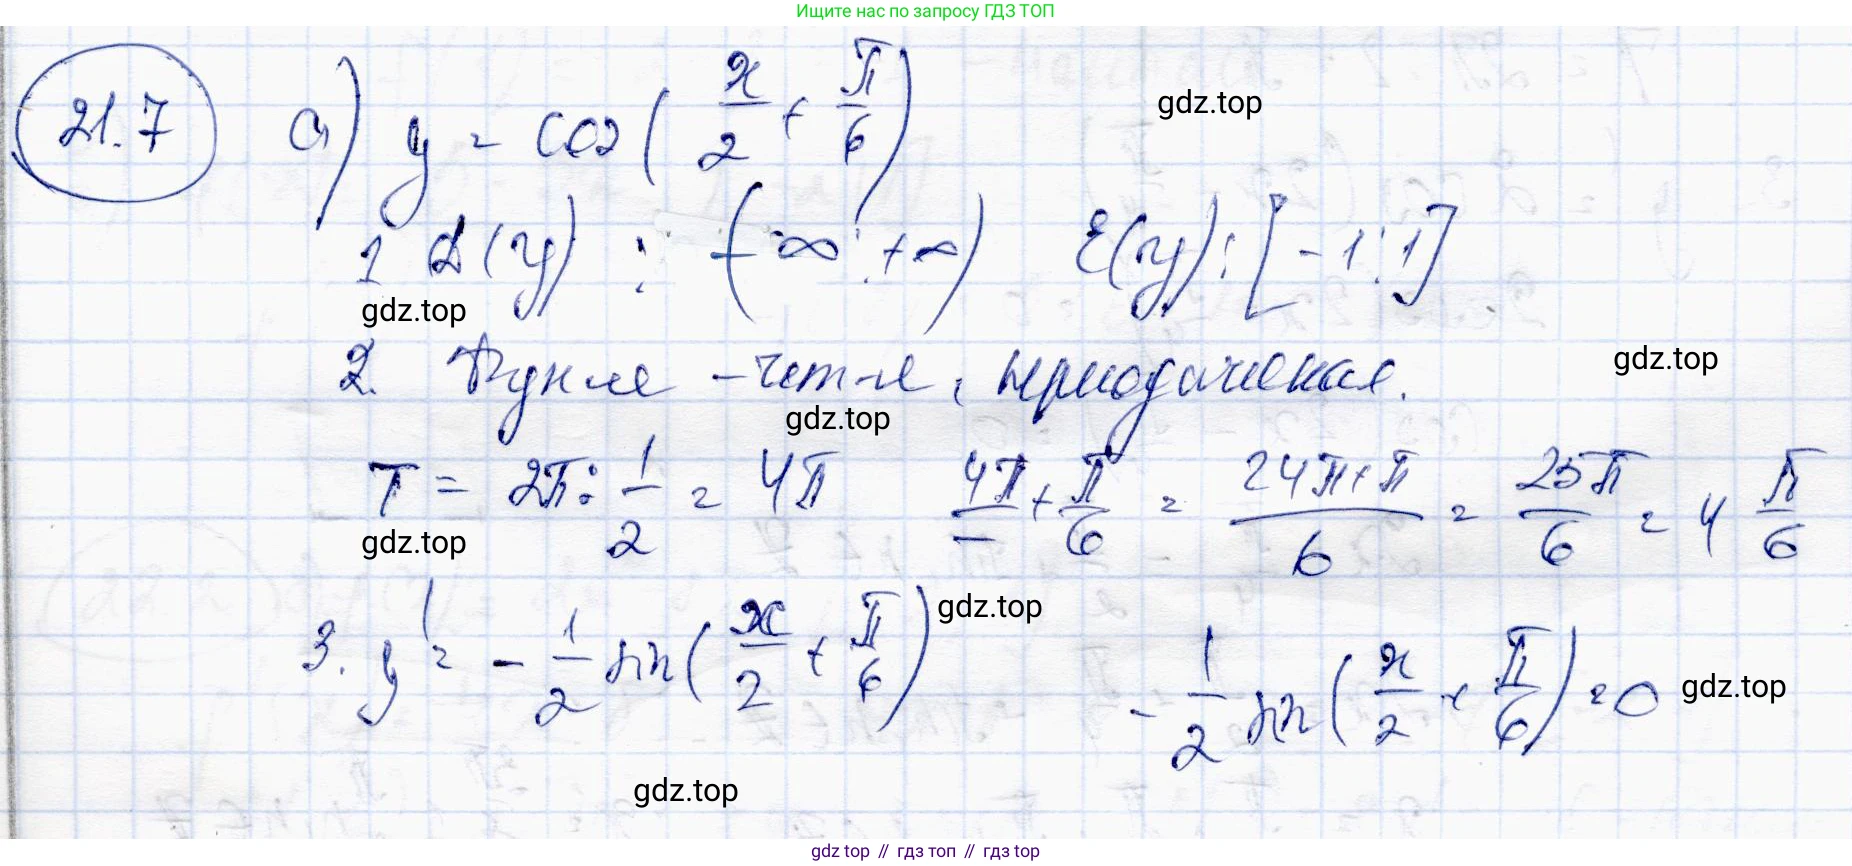 Ищите нас по запросу ГДЗ ТОП
21.7 а) y = cos(x/2 + π/6)
gdz.top
1 D(y) : (-∞; +∞) E(y): [-1; 1]
gdz.top
2. Функция - четн-я, периодическая.
gdz.top
gdz.top
T = 2π : 1/2 = 4π 4π/– + π/6 = 24π+π/6 = 25π/6 = 4 π/6
gdz.top
3. y' = - 1/2 sin(x/2 + π/6) - 1/2 sin(x/2 + π/6) = 0
gdz.top
gdz.top
gdz.top
gdz top // гдз топ // гдз top